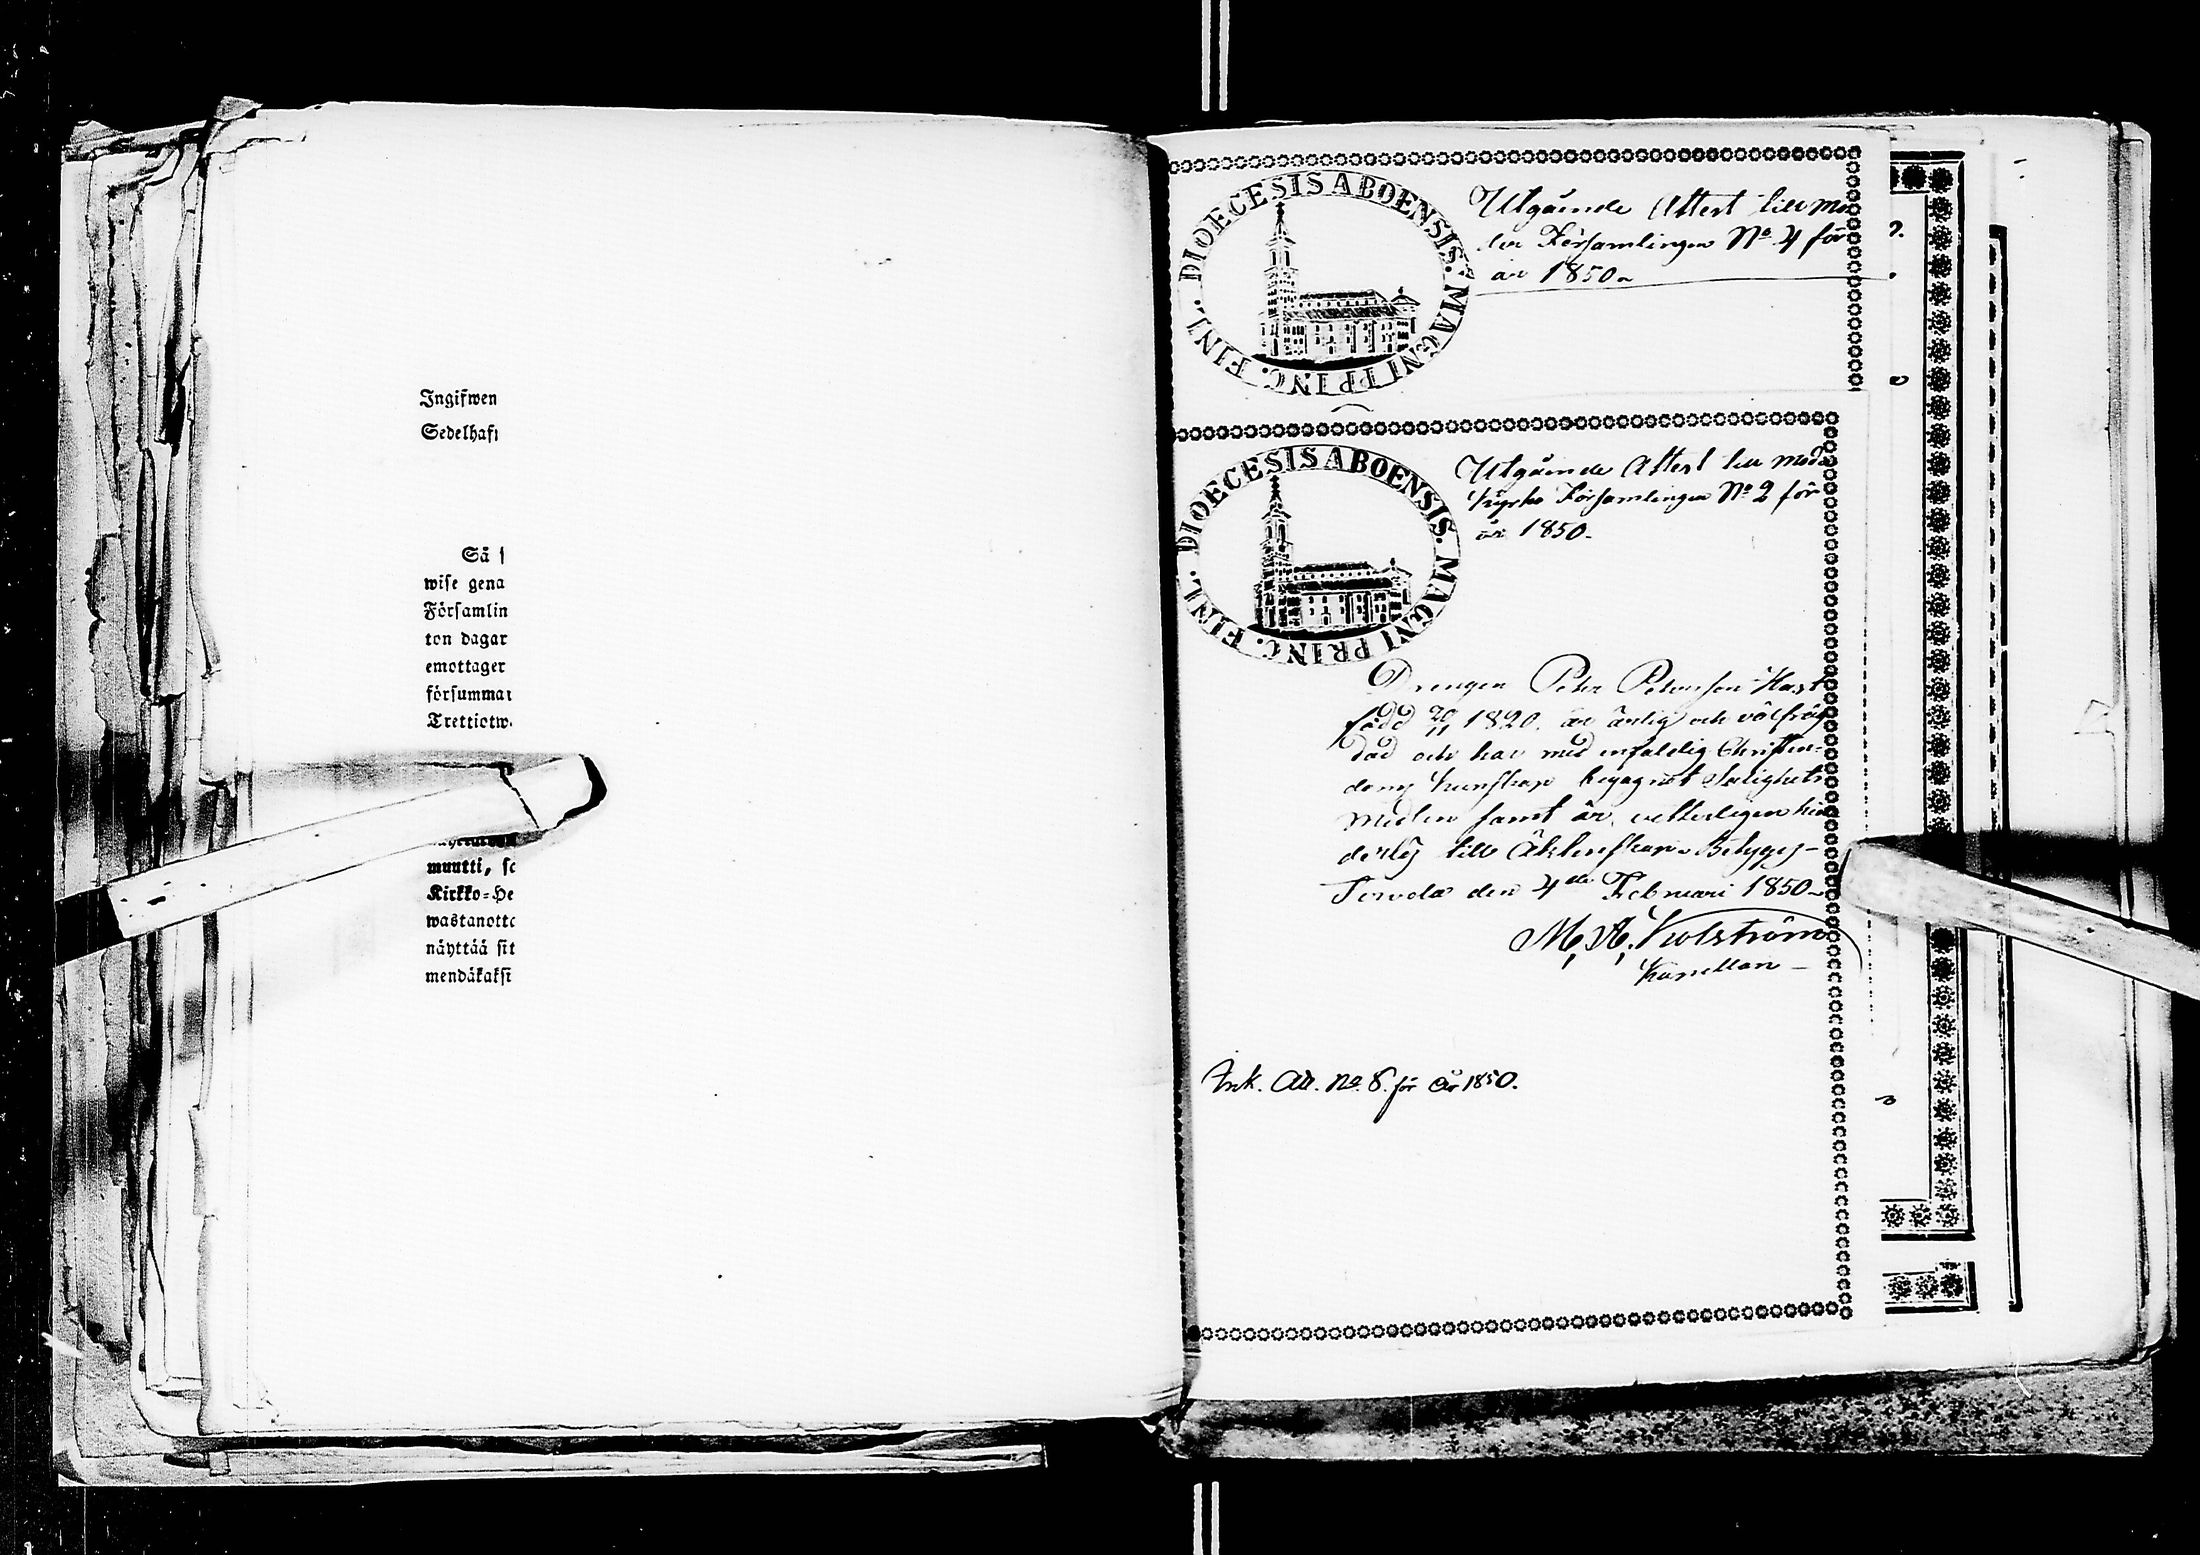 Ingifwen
Sedelhaf
Så
wise gena
Församlin
ton dagar
emottager
försummar
Trettiotw
muutti, se
Kirkko-He
wastanotto
näyttää sit
mendäkaksi
DIOECESIS ABOENSIS. MAGNI PRINC. FINL.
Utgående Attest till
Församlingen No 4 för
år 1850
DIOECESIS ABOENSIS. MAGNI PRINC. FINL.
Utgående Attest till moder
kyrko Församlingen No 2 för
år 1850.
Drengen Peter Petersson
född 20/11 1820. är ärlig och välfräg
dad och har med enfaldig Christen-
doms kunskap begagnat Salighets
medlen samt är, vetterligen hin
derlös till Äktenskap. Betygas
Tervola den 4de Februari 1850
M, A,
Kapellan
Ink. Att. No. 8. för År 1850.